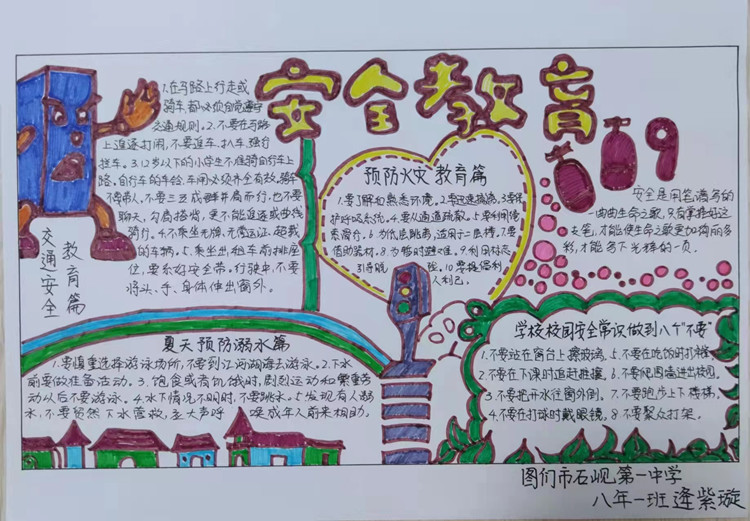 安全教育
交通安全
教育篇
1.在马路上行走或
骑车都必须自觉遵守
交通规则。2.不要在马路
上追逐打闹,不要追车、扒车、强行
拦车。3.12岁以下的小学生不准骑自行车上
路。自行车的车铃、车闸必须齐全有效。骑车
不带人,不要三五成群并肩而行,也不要
聊天,勾肩搭背,更不能追逐或曲线
骑行。4.不乘坐无牌、无营运证、超载
的车辆。5.乘坐出租车前排座
位,要系好安全带。行驶中,不要
将头、手、身体伸出窗外。
预防火灾教育篇
1.要了解和熟悉环境。2.要迅速撤离。3.要保
护呼吸系统。4.要从通道疏散。5.要利用绳
索滑行。6.为低层跳离,适用于二层楼。7.要
借助器材。8.为暂时避难。9.利用标志
引导脱险。10.要提倡利
人利己。
119
安全是用蓝谱写的
一曲曲生命之歌,只有掌握好这
支笔,才能使生命之歌更加绚丽多
彩,才能写下光辉的一页。
夏天预防溺水篇
1.要慎重选择游泳场所,不要到江河湖海去游泳。2.下水
前要做准备活动。3.饱食或者饥饿时,剧烈运动和繁重劳
动以后不要游泳。4.水下情况不明时,不要跳水。5.发现有人溺
水,不要贸然下水营救,应大声呼唤成年人前来相助。
学校校园安全常识做到八个"不要"
1.不要站在窗台上擦玻璃。5.不要在吃饭时打闹。
2.不要在下课时追赶推攘。6.不要爬围墙进出校园。
3.不要把开水往窗外倒。7.不要跑步上下楼梯。
4.不要在打球时戴眼镜。8.不要聚众打架。
图们市石岘第一中学
八年一班逄紫璇